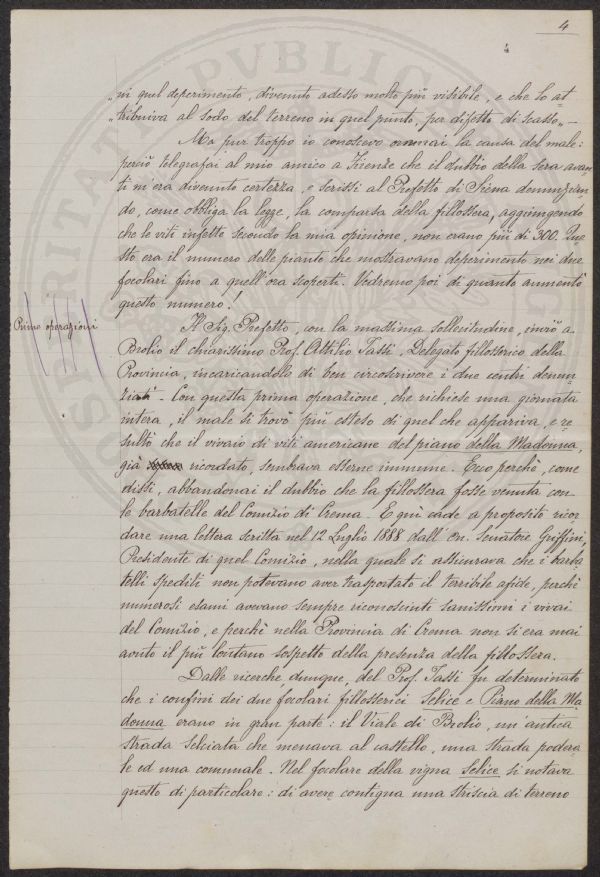 4
4
„in quel deperimento, divenuto adesso molto più visibile, e che lo at-
„tribuiva al sodo del terreno in quel punto, per difetto di scasso„ —
Ma pur troppo io conoscevo omai la causa del male:
perciò telegrafai al mio amico a Firenze che il dubbio della sera avan
ti m'era divenuto certezza, e scrissi al Prefetto di Siena denunzian
do, come obbliga la legge, la comparsa della fillossera, aggiungendo
che le viti infette secondo la mia opinione, non erano più di 300. Que
sto era il numero delle piante che mostravano deperimento nei due
focolari fino a quell'ora scoperti. Vedremo poi di quanto aumentò
questo numero!
Prime operazioni
Il Sig. Prefetto, con la massima sollecitudine, inviò a
Brolio il chiarissimo Prof. Attilio Tassi, Delegato fillosserico della
Provincia, incaricandolo di ben circoscrivere i due centri denun
ziati — Con questa prima operazione, che richiese una giornata
intera, il male si trovò più esteso di quel che appariva, e re
sultò che il vivaio di viti americane del piano della Madonna,
già ricordato, sembrava esserne immune. Ecco perchè, come
dissi, abbandonai il dubbio che la fillossera fosse venuta con
le barbatelle del Comizio di Crema. E qui cade a proposito ricor
dare una lettera scritta nel 12 Luglio 1888 dall'On. Senatore Griffini,
Presidente di quel Comizio, nella quale si assicurava che i barba
telli spediti non potevano aver trasportato il terribile afide, perchè
numerosi esami avevano sempre riconosciuti sanissimi i vivai
del Comizio, e perchè nella Provincia di Crema non si era mai
avuto il più lontano sospetto della presenza della fillossera.
Dalle ricerche, dunque, del Prof. Tassi fu determinato
che i confini dei due focolari fillosserici Selice e Piano della Ma
donna erano in gran parte: il Viale di Brolio, un'antica
strada selciata che menava al castello, una strada podera
le ed una comunale. Nel focolare della vigna Selice si notava
questo di particolare: di avere contigua una striscia di terreno